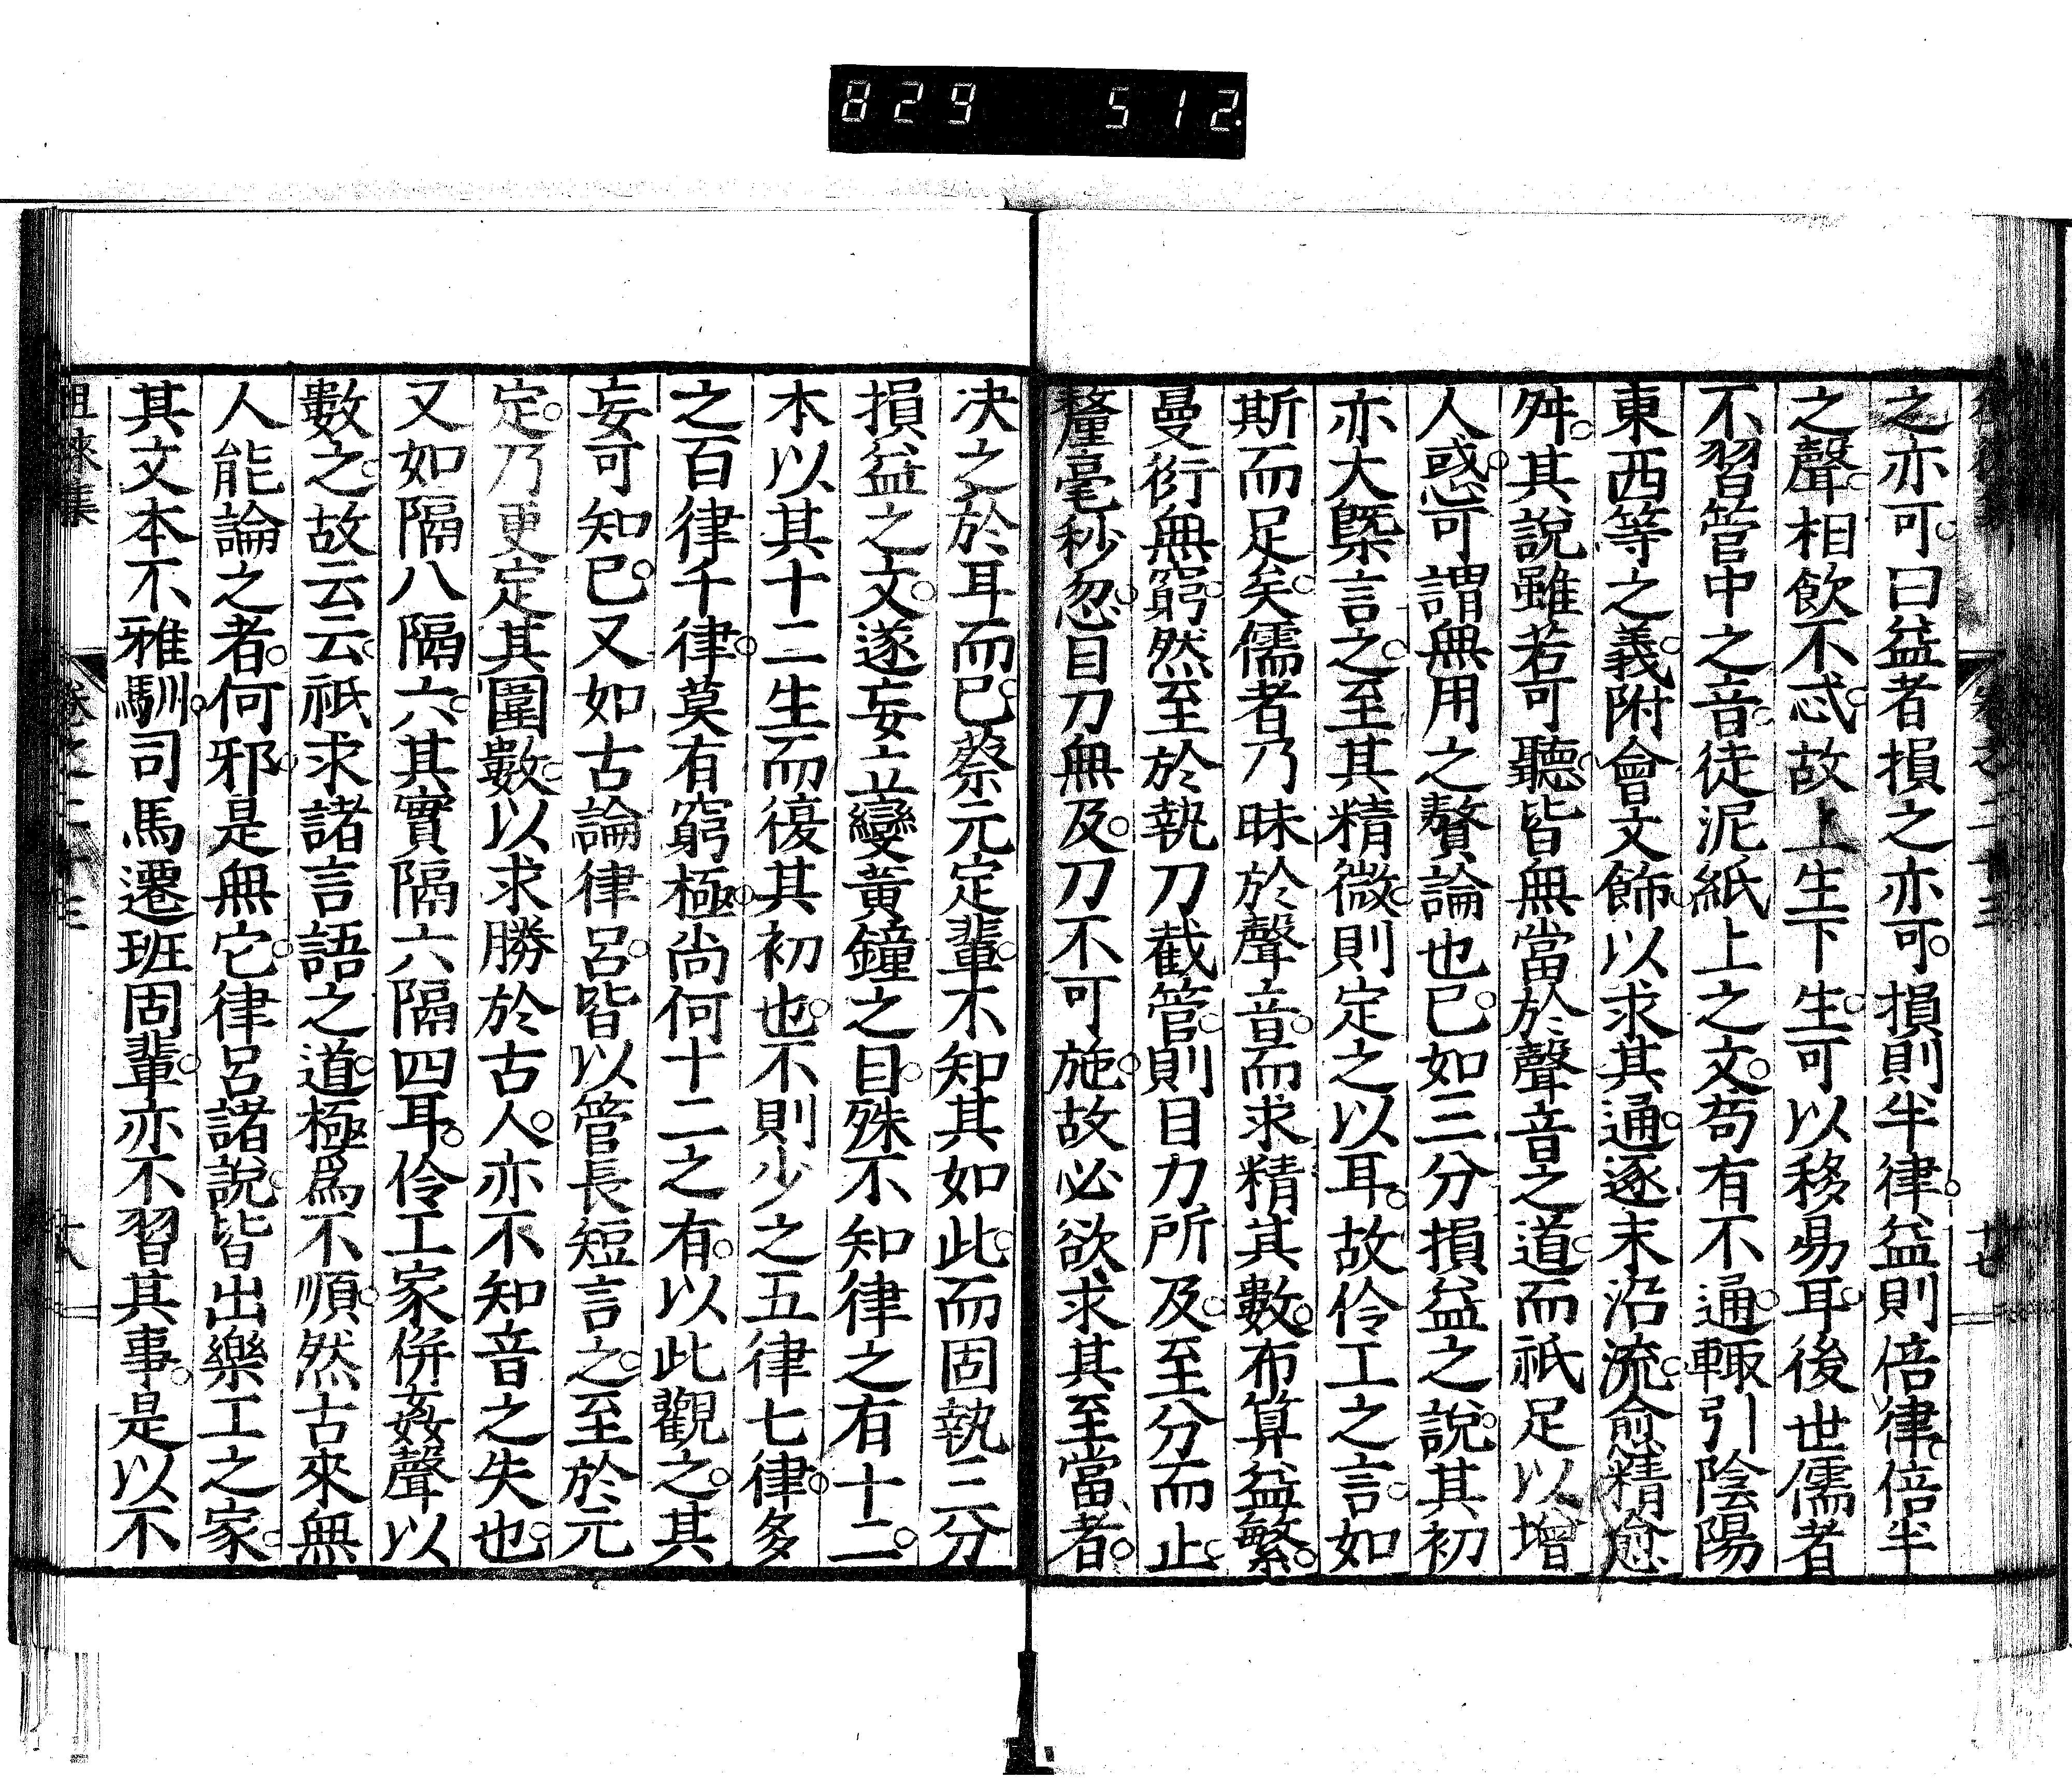 829 512
之亦可。曰益者損之亦可。損則半律。益則倍律。倍半
之聲。相飲不忒。故上生下生。可以移易耳。後世儒者
不習管中之音。徒泥紙上之文。苟有不通。輙引陰陽
東西等之義。附會文飾。以求其通。逐末沿流。愈精愈
舛。其說雖若可聽。皆無當於聲音之道。而祇足以增
人惑。可謂無用之贅論也已。如三分損益之說。其初
亦大槩言之。至其精微。則定之以耳。故伶工之言。如
斯而足矣。儒者乃昧於聲音。而求精其數。布算益繁。
曼衍無窮。然至於執刀截管。則目力所及。至分而止。
釐毫秒忽。目刀無及。刀不可施。故必欲求其至當者。
决之於耳而已。蔡元定輩。不知其如此。而固執三分
損益之文。遂妄立變黃鐘之目。殊不知律之有十二。
本以其十二生而復其初也。不則少之五律七律。多
之百律千律。莫有窮極。尚何十二之有。以此觀之。其
妄可知已。又如古論律呂。皆以管長短言之。至於元
定。乃更定其圍數。以求勝於古人。亦不知音之失也。
又如隔八隔六。其實隔六隔四耳。伶工家併姦聲以
數之。故云云。祇求諸言語之道。極爲不順。然古來無
人能論之者。何邪。是無它。律呂諸說。皆出樂工之家。
其文本不雅馴。司馬遷班固輩。亦不習其事。是以不
集 卷之二十三 廿八